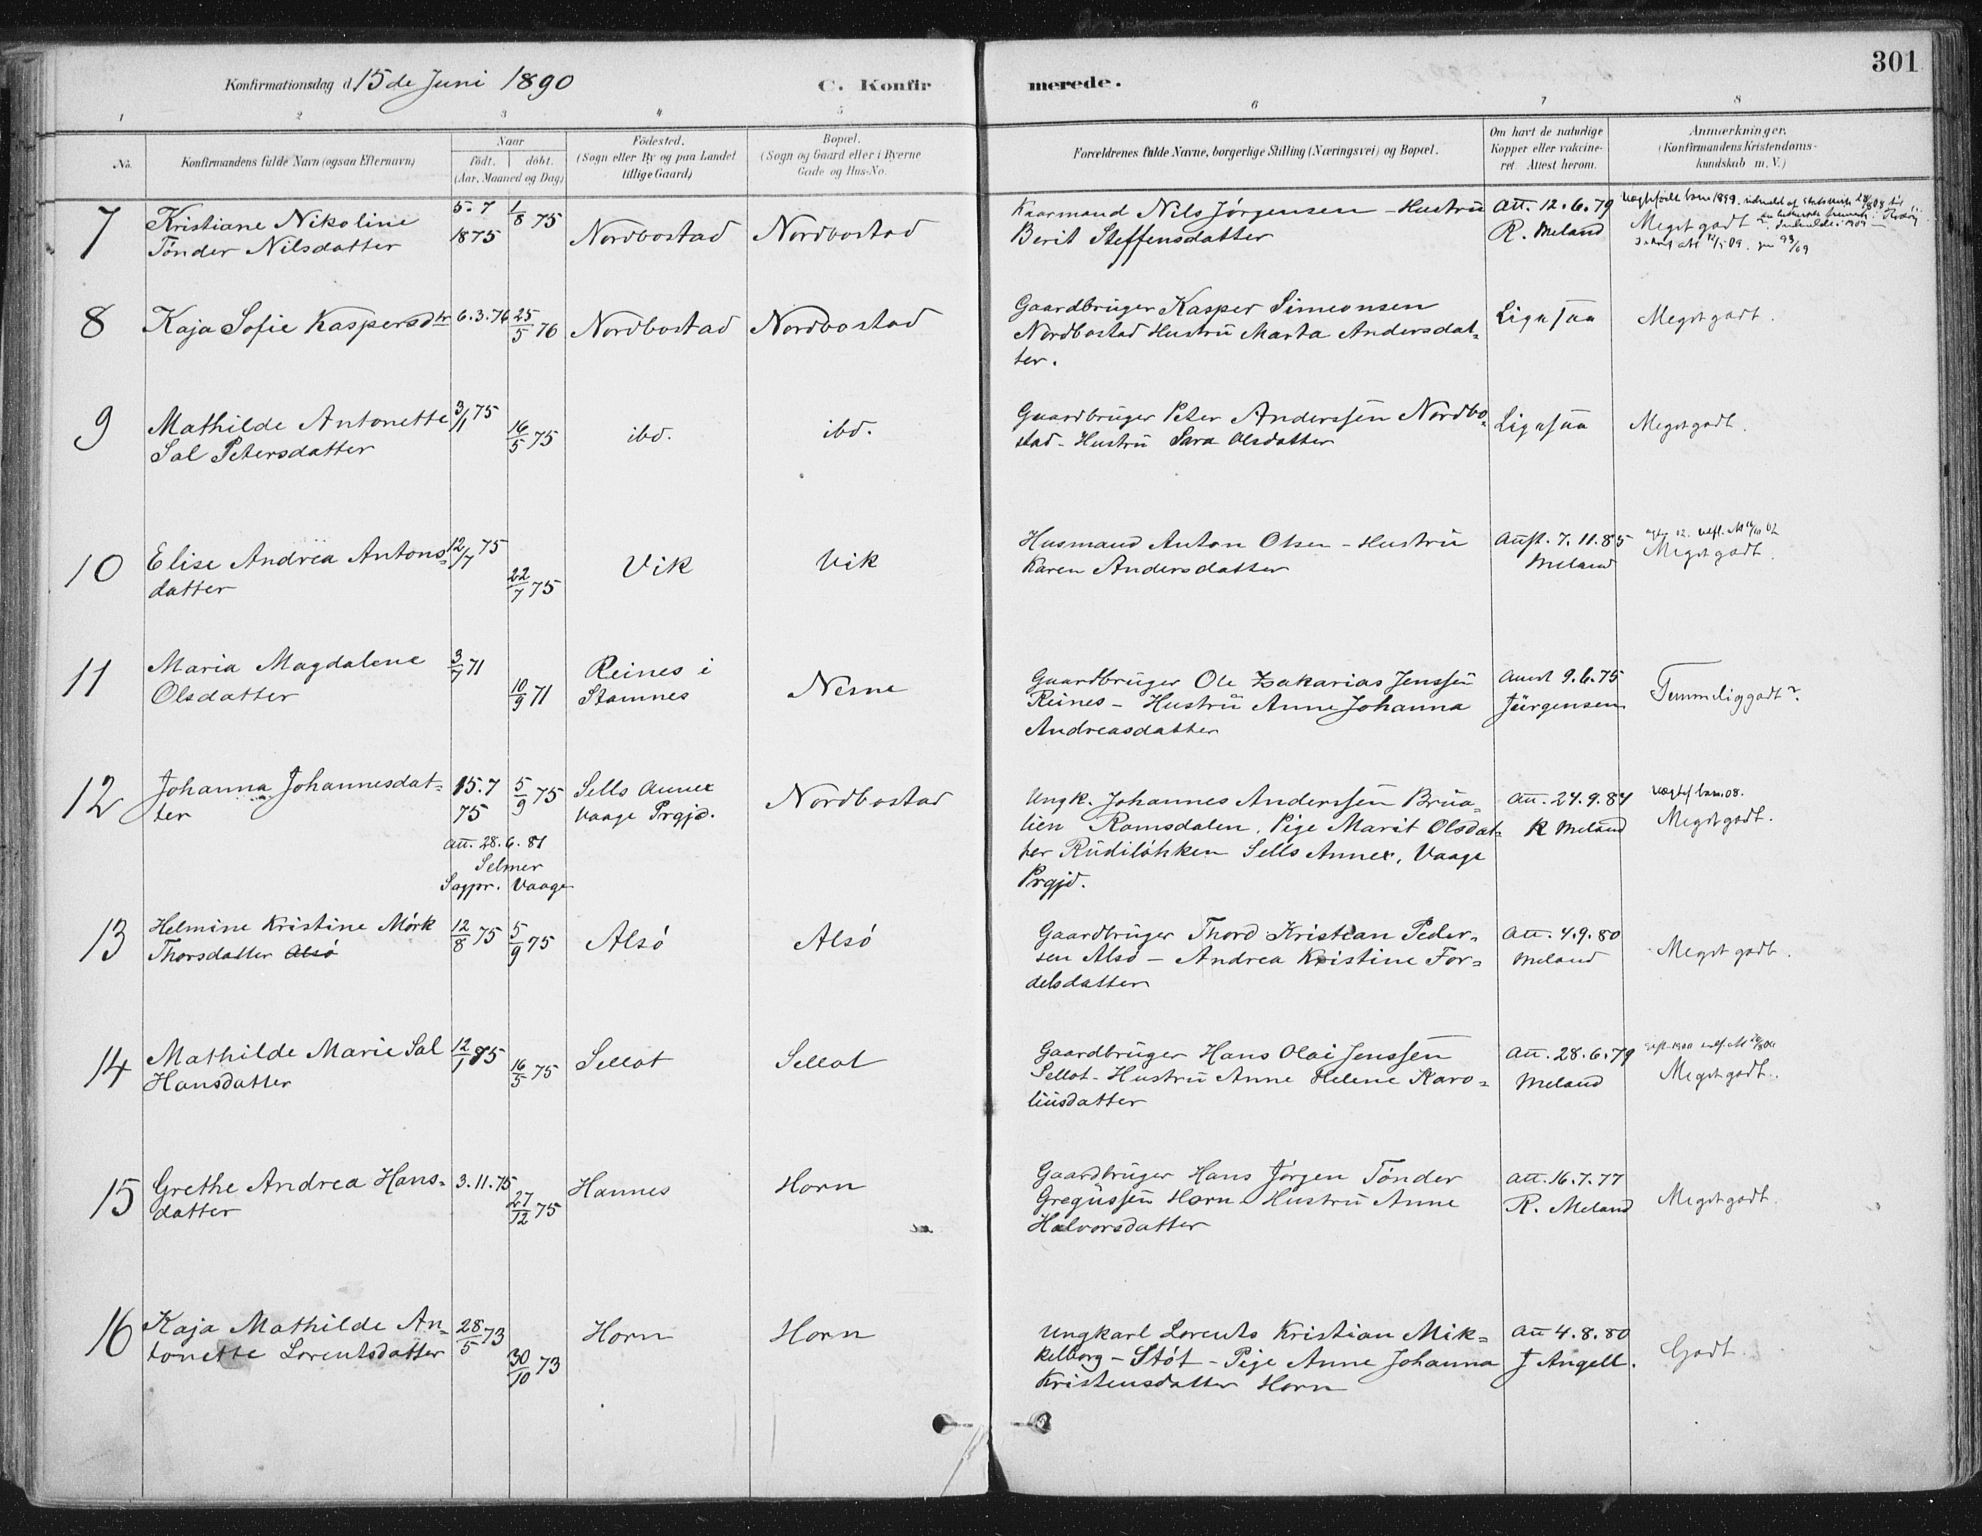 301
Konfirmationsdag d 15de Juni 1890
C. Konfirmerede.
1 2 3 4 5 6 7 8
No.
Konfirmandens fulde Navn (ogsaa Efternavn)
Naar
født. døbt.
(Aar, Maaned og Dag)
Födested.
(Sogn eller By og paa Landet
tillige Gaard)
Bopæl.
(Sogn og Gaard eller i Byerne
Gade og Hus-No.
Forældrenes fulde Navne, borgerlige Stilling (Næringsvei) og Bopæl.
Om havt de naturlige
Kopper eller vakcine-
ret. Attest herom.
Anmærkninger.
(Konfirmandens Kristendoms-
kundskab m. V.)
7
Kristiane Nikoline
Tönder Nilsdatter
5. 7
1875
1/8 75
Nordbostad
Nordbostad
Kaarmand Nils Jörgensen - Hustru
Berit Steffensdatter
Att. 12.6.79
R. Meland
Meget godt
8
Kaja Sofie Kaspersdtr
6.3.76
25/5 76
Nordbostad
Nordbostad
Gaardbruger Kasper Simeonsen
Nordbostad Hustru Marta Andersdat-
ter.
Ligesaa
Meget godt.
9
Mathilde Antonette
Sal Petersdatter
3/1 75
16/5 75
ibd.
ibd.
Gaardbruger Peter Anderssen Nordbo-
stad - Hustru Sara Olsdatter
Ligesaa
Meget godt.
10
Elise Andrea Antons-
datter
12/7 75
22/7 75
Vik
Vik
Husmand Anton Olsen - Hustru
Karen Andersdatter
Attst. 7.11.85
Meland
Meget godt.
11
Maria Magdalene
Olsdatter
3/7 71
10/9 71
Reines i
Stamnes
Nesne
Gaardbruger Ole Zakarias Jenssen
Reines - Hustru Anne Johanna
Andreasdatter
9.6.75
Jürgensen
Temmelig godt
12
Johanna Johannesdat-
ter
15.7
75
5/9 75
Att. 28.6.81
Selmer
Sogpr. Vaage
Sells Annex
Vaage Prgjd.
Nordbostad
Ungk. Johannes Anderssen Brua-
lien Romsdalen. Pige Marit Olsdat-
ter Rudilökken Sells Annex, Vaage
Prgjd.
Att. 24.9.84
R Meland
Meget godt.
13
Helmine Kristine Mörk
Thorsdatter Alsö
12/8 75
5/9 75
Alsö
Alsö
Gaardbruger Thord Kristian Peder-
sen Alsö - Andrea Kristine For-
delsdatter
Att. 4.9.80
Meland
Meget godt.
14
Mathilde Marie Sal
Hansdatter
12/1 75
16/5 75
Sellot
Sellot
Gaardbruger Hans Olai Jenssen
Sellot - Hustru Anne Helene Karo-
liusdatter
Att. 28.6.79
Meland
Meget godt.
15
Grethe Andrea Hans-
datter
3.11.75
27/12 75
Hannes
Horn
Gaardbruger Hans Jörgen Tönder
Gregussen Horn - Hustru Anne
Halvorsdatter
Att. 16.7.77
R. Meland
Meget godt.
16
Kaja Mathilde An-
tonette Lorentsdatter
28/5 73
30/10 73
Horn
Horn
Ungkarl Lorents Kristian Mik-
kelborg - Stöt - Pige Anne Johanna
Kristensdatter Horn
Att 4.8.80
J Angell.
Godt.